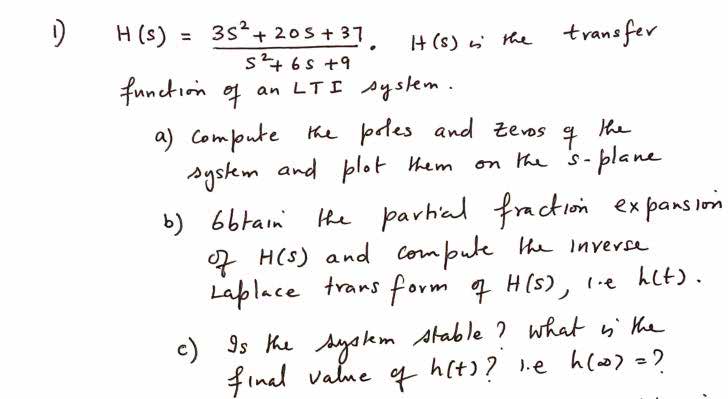 1) H(s) = 3s²+20s+37 / s²+6s+9 . H(s) is the transfer
function of an LTI system.
a) compute the poles and zeros of the
system and plot them on the s-plane
b) Obtain the partial fraction expansion
of H(s) and compute the inverse
Laplace transform of H(s), i.e h(t).
c) Is the system stable? What is the
final value of h(t)? i.e h(∞) = ?